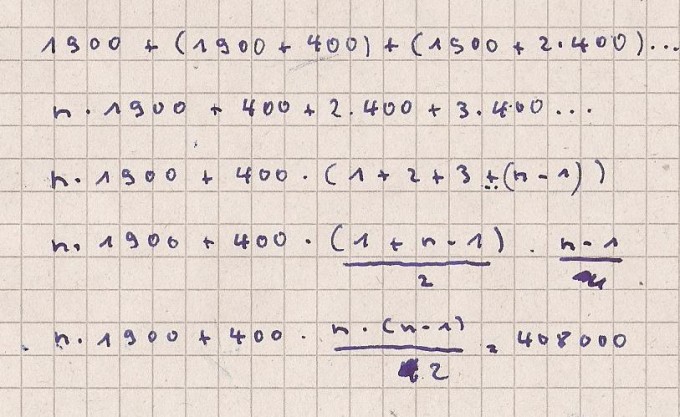 1900 + (1900 + 400) + (1900 + 2·400)...
n · 1900 + 400 + 2·400 + 3·400 ...
n · 1900 + 400 · (1 + 2 + 3 +..(n-1))
n · 1900 + 400 · (1 + n - 1)/2 · (n-1)/1
n · 1900 + 400 · n·(n-1)/2 = 408000